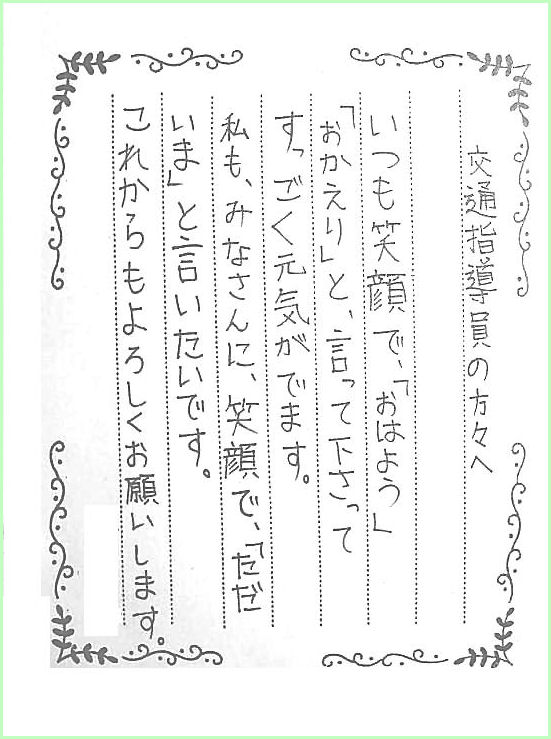 交通指導員の方々へ
いつも笑顔で、「おはよう」
「おかえり」と、言って下さって
すっごく元気がでます。
私も、みなさんに、笑顔で、「ただ
いま」と言いたいです。
これからもよろしくお願いします。